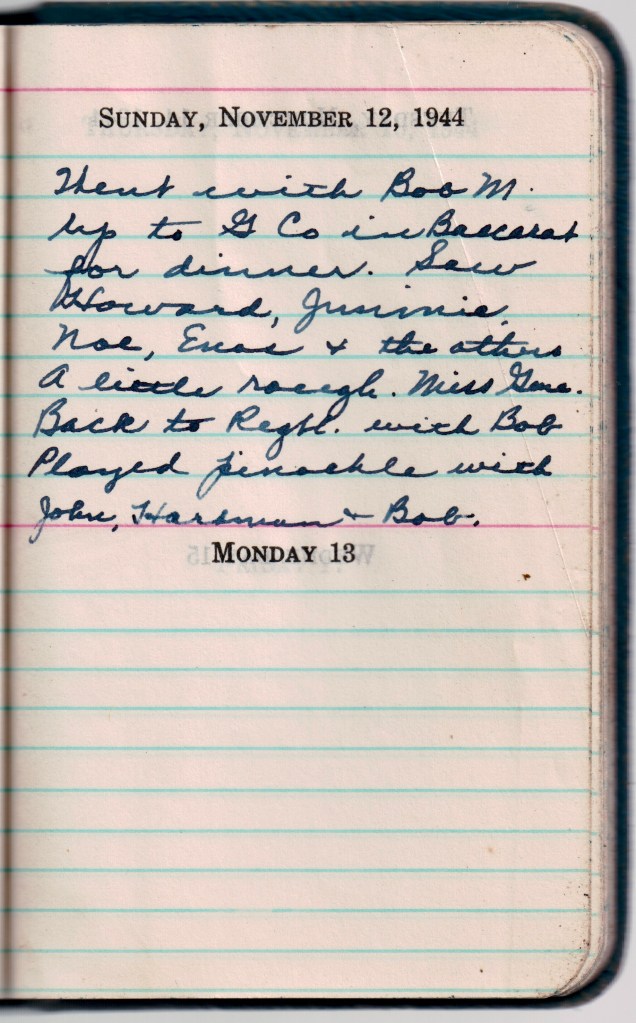 SUNDAY, NOVEMBER 12, 1944
Went with Bob M.
up to G Co in Baccarat
for dinner. Saw
Howard, Jimmie,
Noe, & the others
A little rough. Miss Gene.
Back to Regtl. with Bob
Played pinockle with
John, Hardman & Bob.
MONDAY 13